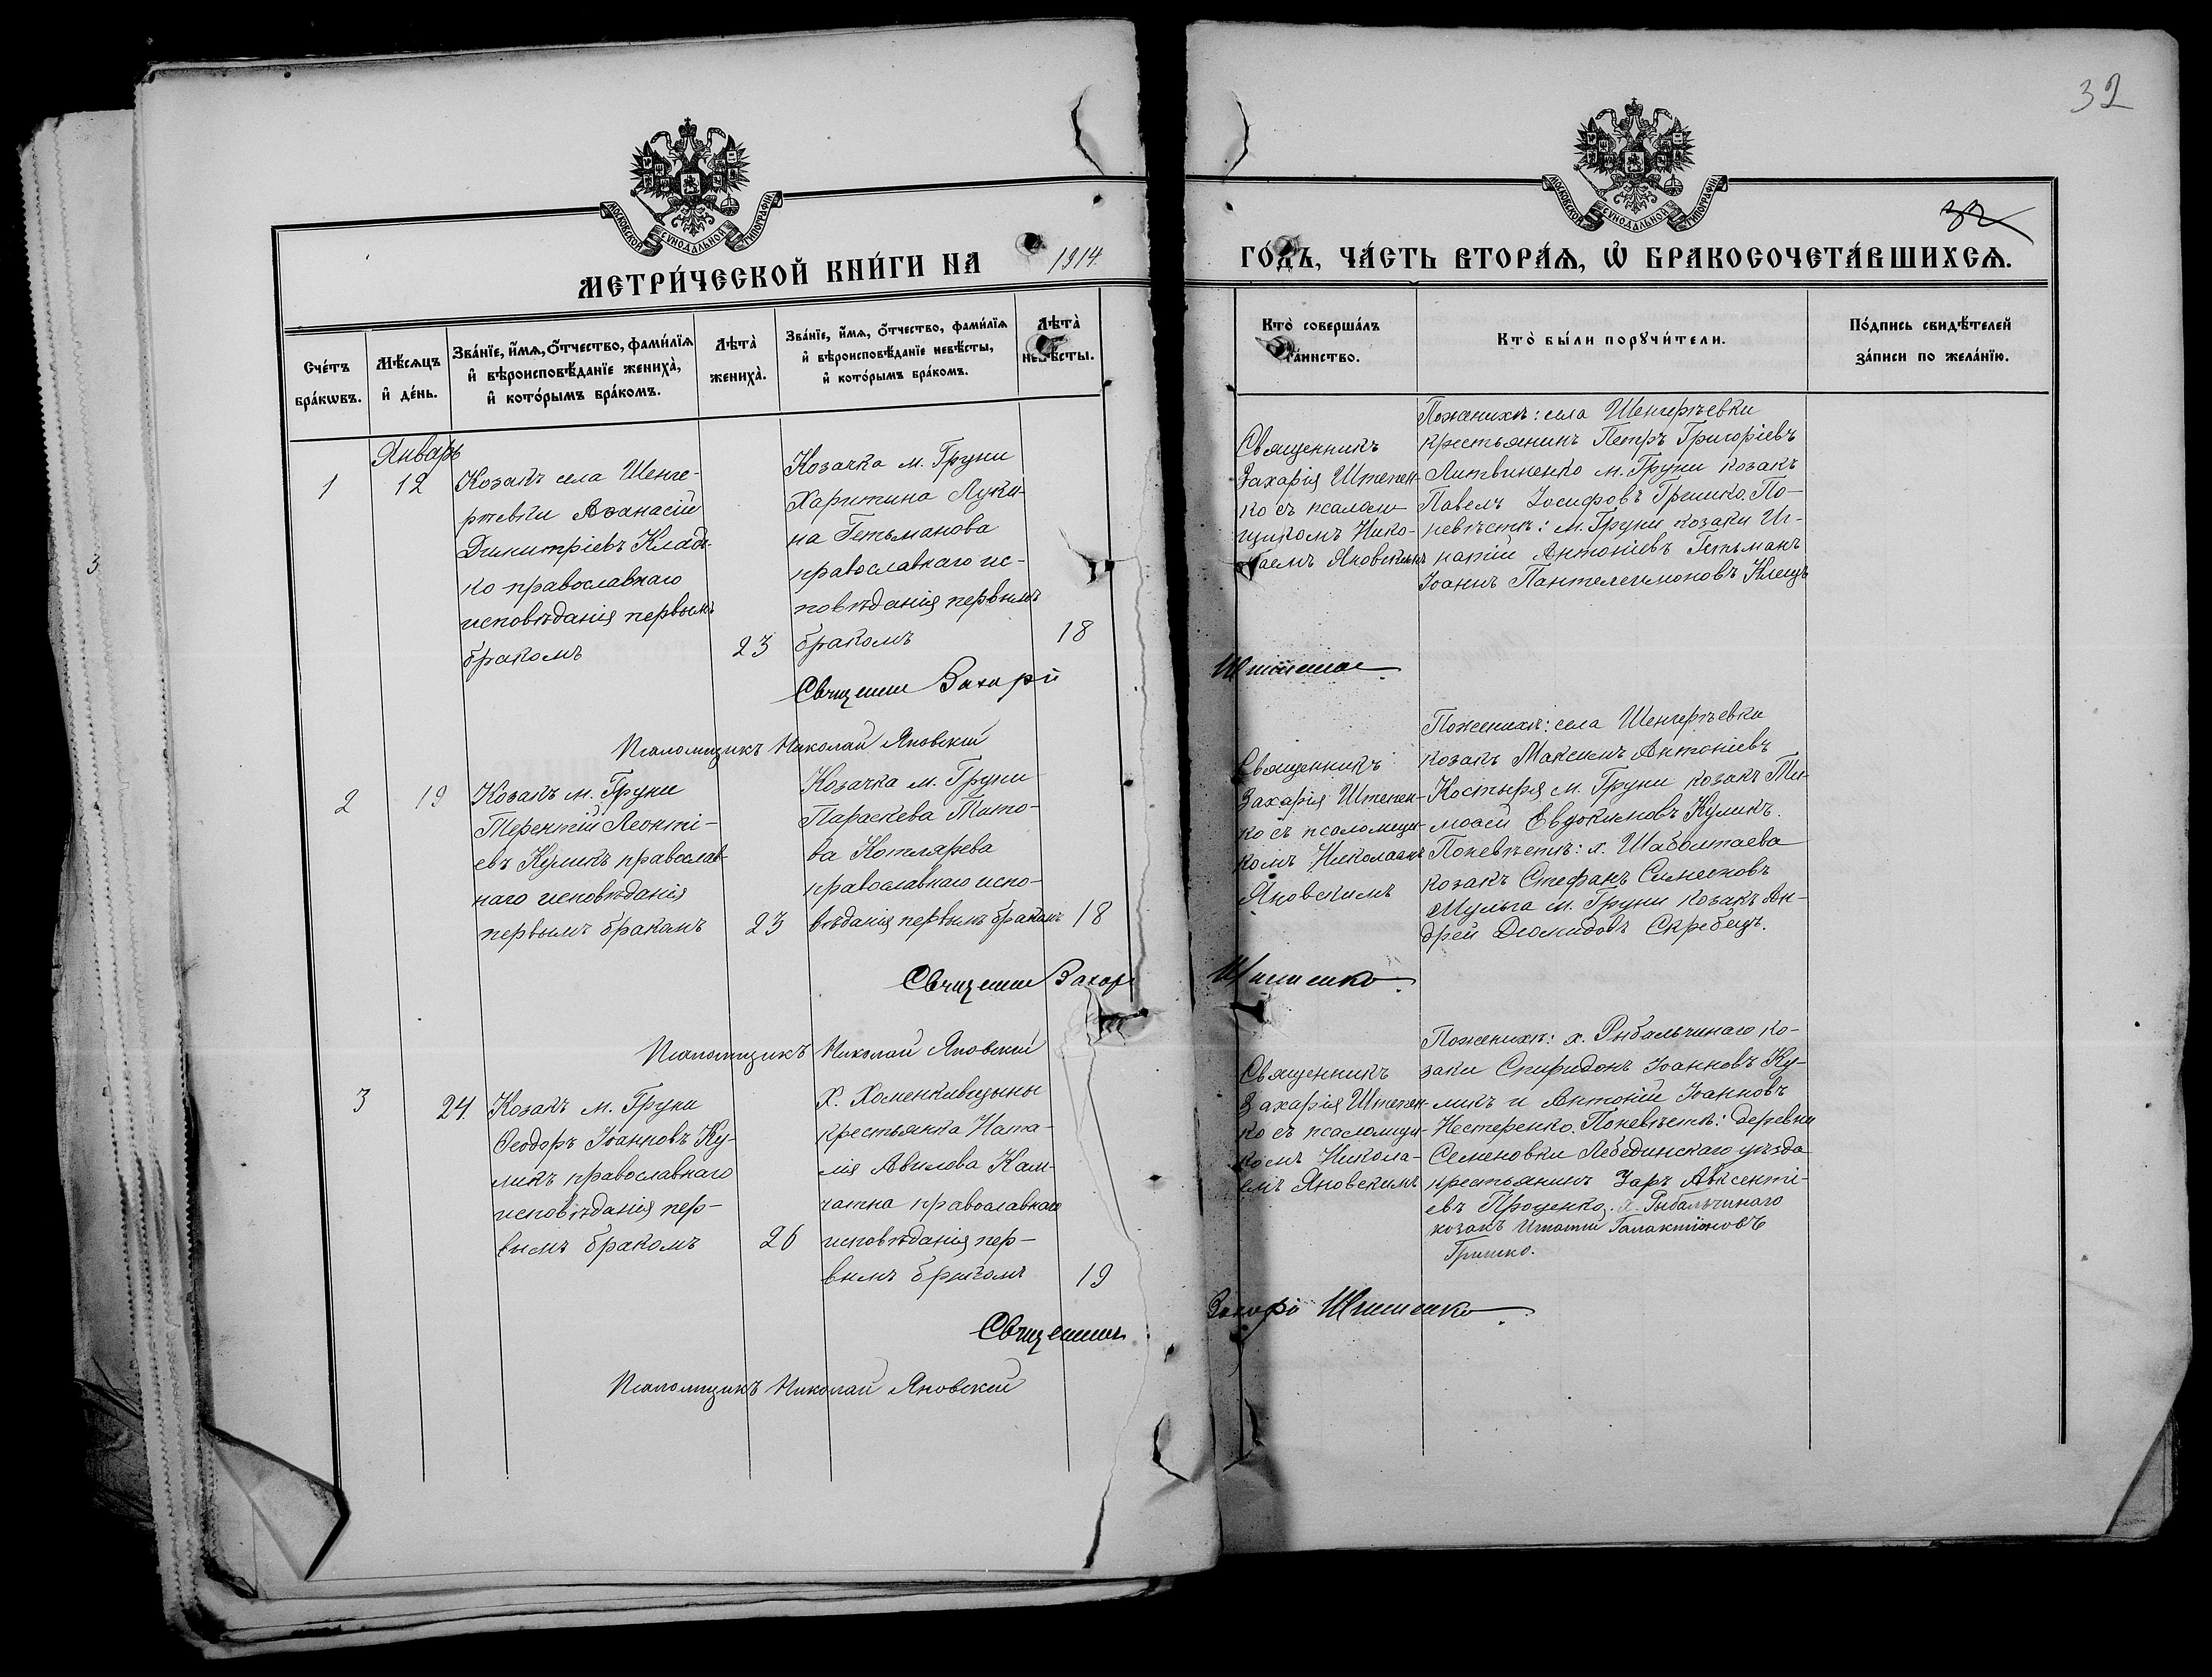 32
32
МОСКОВСКОЙ СѴНОДАЛЬНОЙ ТИПОГРАФІИ
МОСКОВСКОЙ СѴНОДАЛЬНОЙ ТИПОГРАФІИ
МЕТРИ́ЧЕСКОЙ КНИ́ГИ НА 1914 ГО́ДЪ, ЧА́СТЬ ВТОРА́Ѧ, Ѡ҆ БРАКОСОЧЕТА́ВШИХСѦ.
Сче́тъ
бра́кѡвъ.
Мѣ́сѧцъ
и҆ де́нь.
Зва́нїе, и҆́мѧ, ѻ҆́тчество, фами́лїѧ
и҆ вѣроисповѣ́данїе жениха̀,
и҆ кото́рымъ бра́комъ.
Лѣта̀
жениха̀.
Зва́нїе, и҆́мѧ, ѻ҆́тчество, фами́лїѧ
и҆ вѣроисповѣ́данїе невѣ́сты,
и҆ кото́рымъ бра́комъ.
Лѣта̀
невѣ́сты.
Кто̀ соверша́лъ
та́инство.
Кто̀ бы́ли порꙋчи́тели.
По́дпись свидѣ́телей
за́писи по жела́нїю.
Январь
1
12
Козакъ села Шенге-
рѣевки Аѳанасій
Димитріевъ Кладь-
ко православнаго
исповѣданія первымъ
бракомъ
23
Козачка м. Груни
Харитина Луки-
на Гетьманова
православнаго ис-
повѣданія первымъ
бракомъ
18
Священникъ
Захарія Штепен-
ко съ псалом-
щикомъ Нико-
лаемъ Яновскимъ
Поженихѣ: села Шенгерѣевки
крестьянинъ Петръ Григоріевъ
Литвиненко м. Груни козакъ
Павелъ Іосифовъ Гришко. По-
невѣстѣ: м. Груни козаки Иг-
натій Антоніевъ Гетьманъ
Іоаннъ Пантелеимоновъ Клещъ
Священ Захарій Штепенко
Псаломщикъ Николай Яновскій
2
19
Козакъ м. Груни
Терентій Леонті-
евъ Куликъ православ-
наго исповѣданія
первымъ бракомъ
23
Козачка м. Груни
Параскева Тито-
ва Котлярева
православнаго испо-
вѣданія первымъ бракомъ
18
Священникъ
Захарія Штепен-
ко съ псаломщи-
комъ Николаемъ
Яновскимъ
Поженихѣ: села Шенгерѣевки
козакъ Максимъ Антоніевъ
Костыря м. Груни козакъ Ти-
моѳей Евдокимовъ Куликъ.
Поневѣстѣ: х. Шаболтаева
козакъ Стефанъ Симеоновъ
Мульга м. Груни козакъ Ан-
дрей Діомидовъ Скребецъ.
Священ Захар Штепенко
Псаломщикъ Николай Яновскій
3
24.
Козакъ м. Груни
Ѳеодоръ Іоанновъ Ку-
ликъ православнаго
исповѣданія пер-
вымъ бракомъ
26
Х. Хоменкивщины
крестьянка Ната-
лія Авилова Кам-
чатна православнаго
исповѣданія пер-
вымъ бракомъ
19
Священникъ
Захарія Штепен-
ко съ псаломщи-
комъ Никола-
емъ Яновскимъ
Поженихѣ: х. Рыбальчинаго ко-
заки Спиридонъ Іоанновъ Ку-
ликъ и Антоній Іоанновъ
Нестеренко. Поневѣстѣ: деревни
Семеновки Лебединскаго уѣзда
крестьянинъ Авксенті-
евъ Проценко, х. Рыбальчинаго
козакъ Игнатій Галактіоновъ
Гришко.
Священникъ Захарі Штепенко
Псаломщикъ Николай Яновскій
3